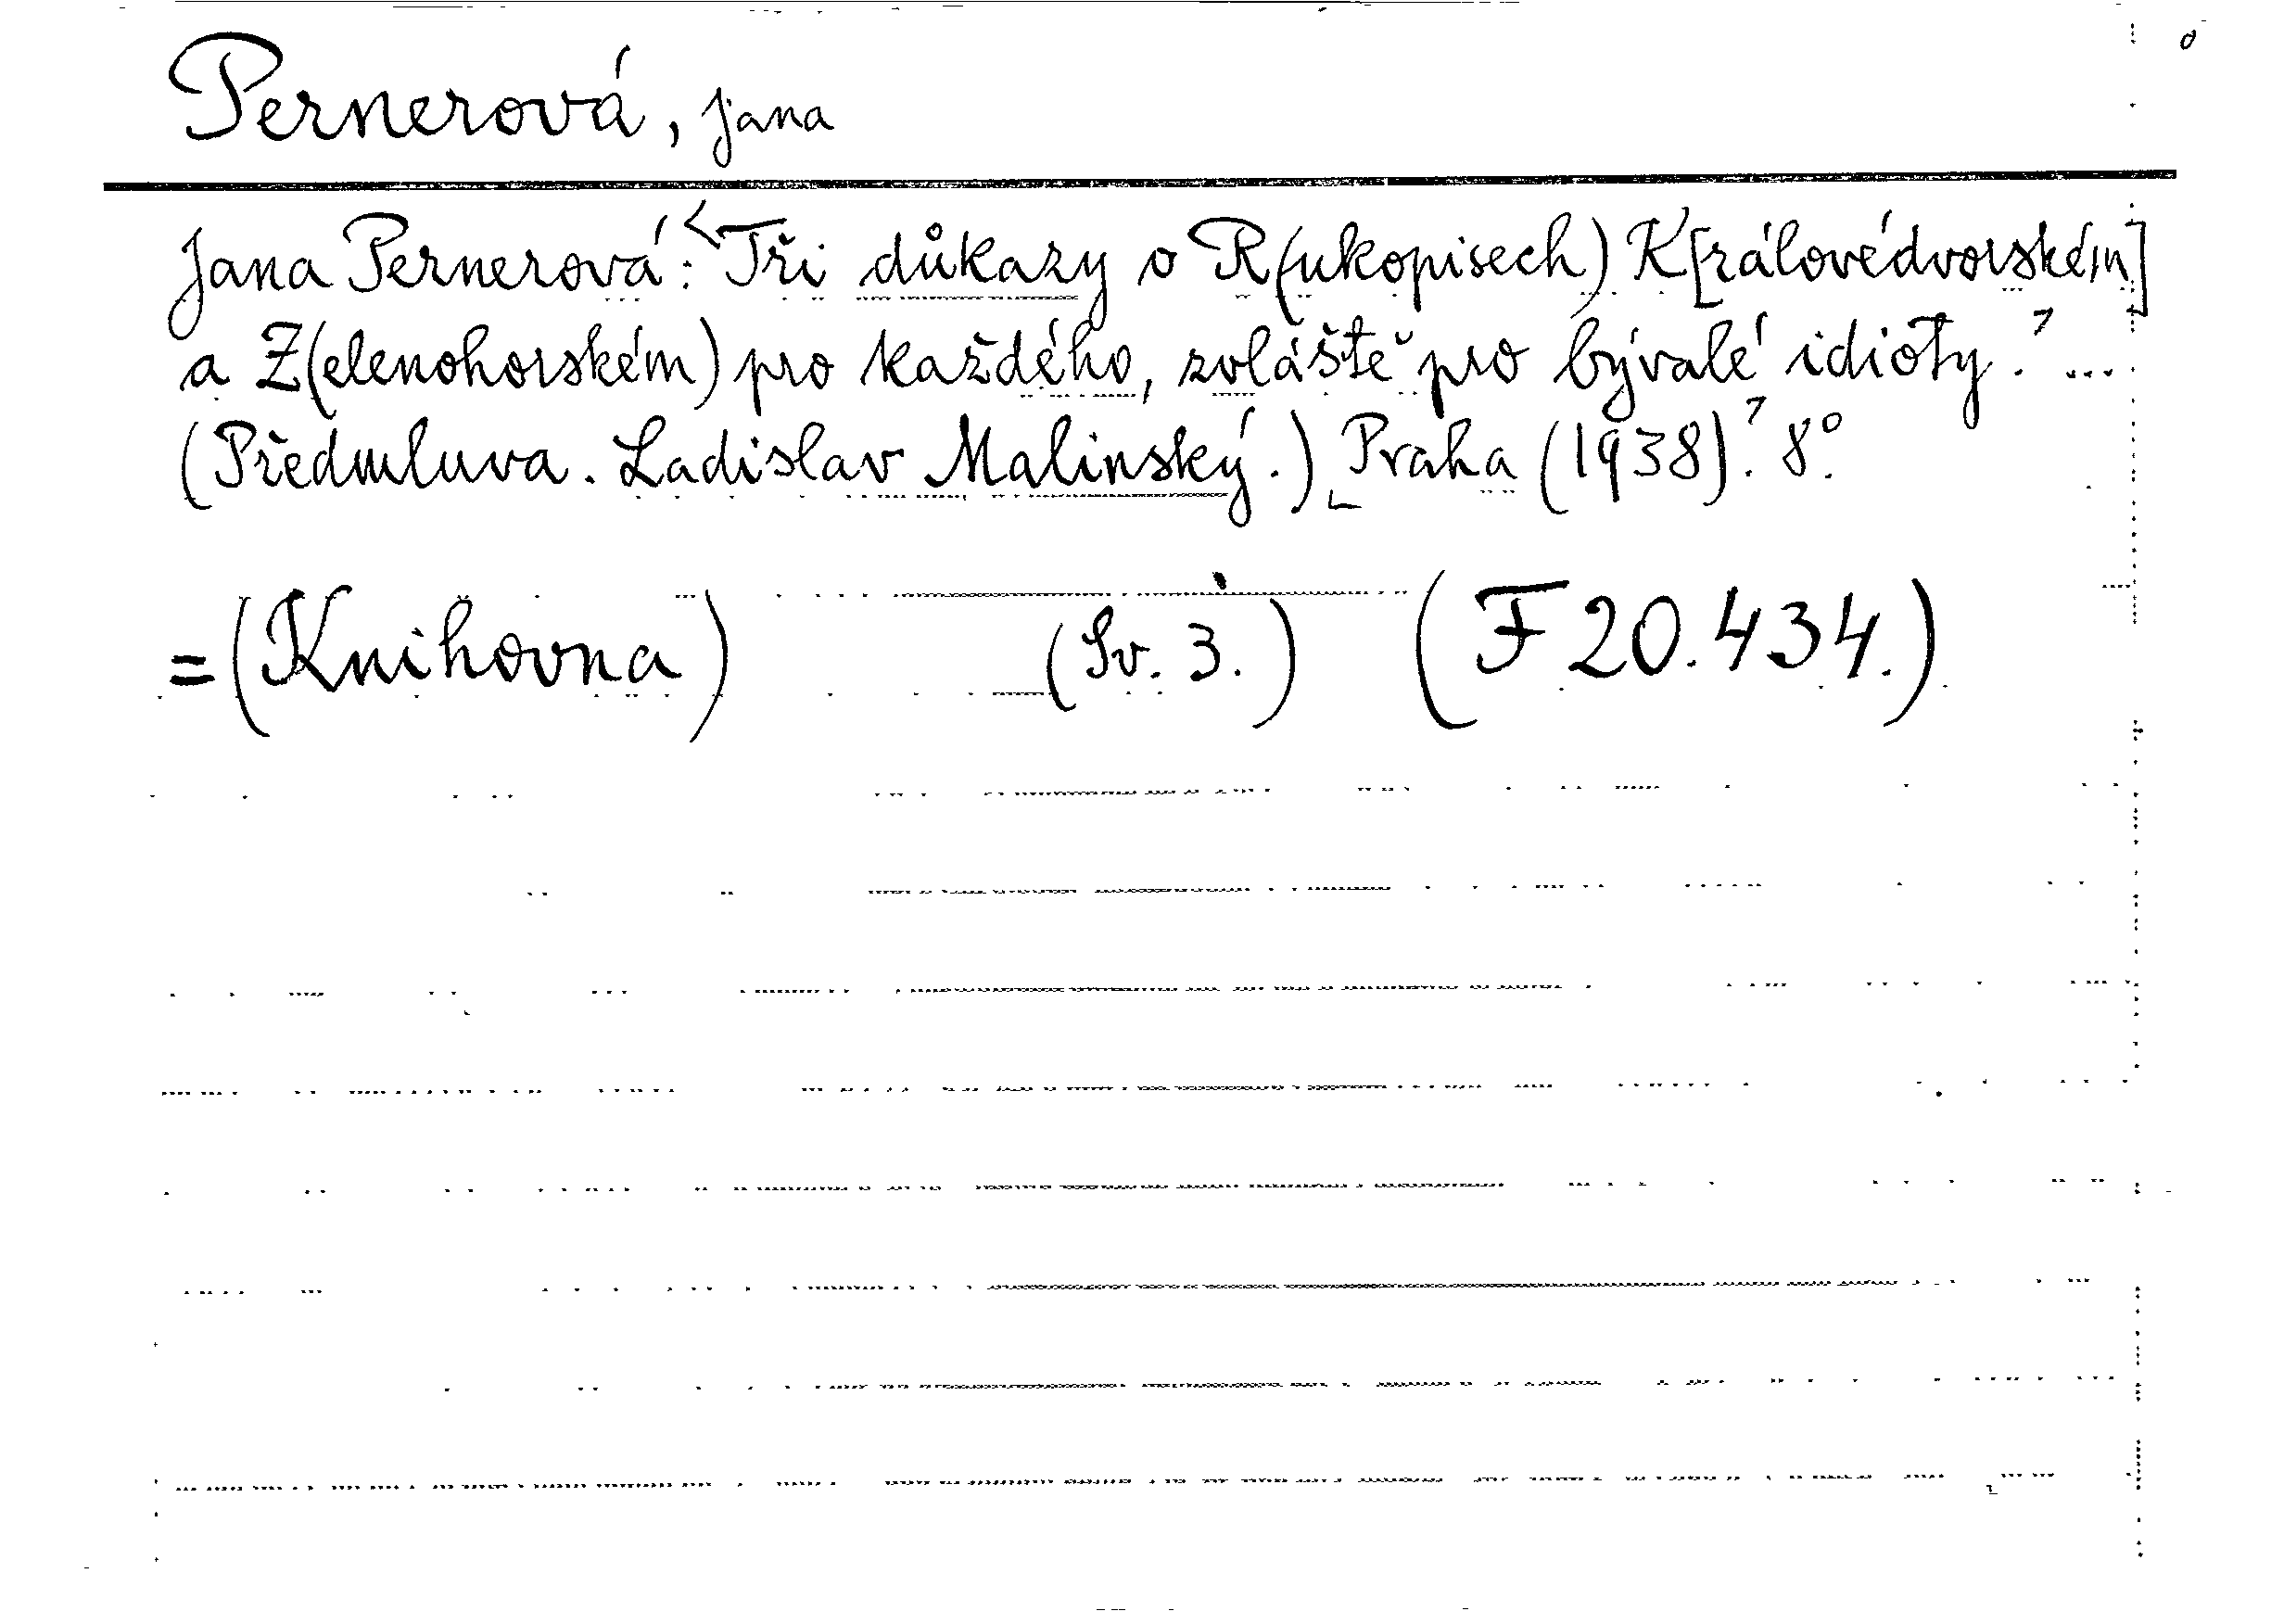 Pernerová, Jana
Jana Pernerová: Tři důkazy o R(ukopisech) K[rálovédvorském]
a Z(elenohorském) pro každého, zvláště pro bývalé idioty. ...
(Předmluva. Ladislav Malinský.) Praha (1938). 8°.
=(Knihovna) (Sv. 3.) (F 20.434.)